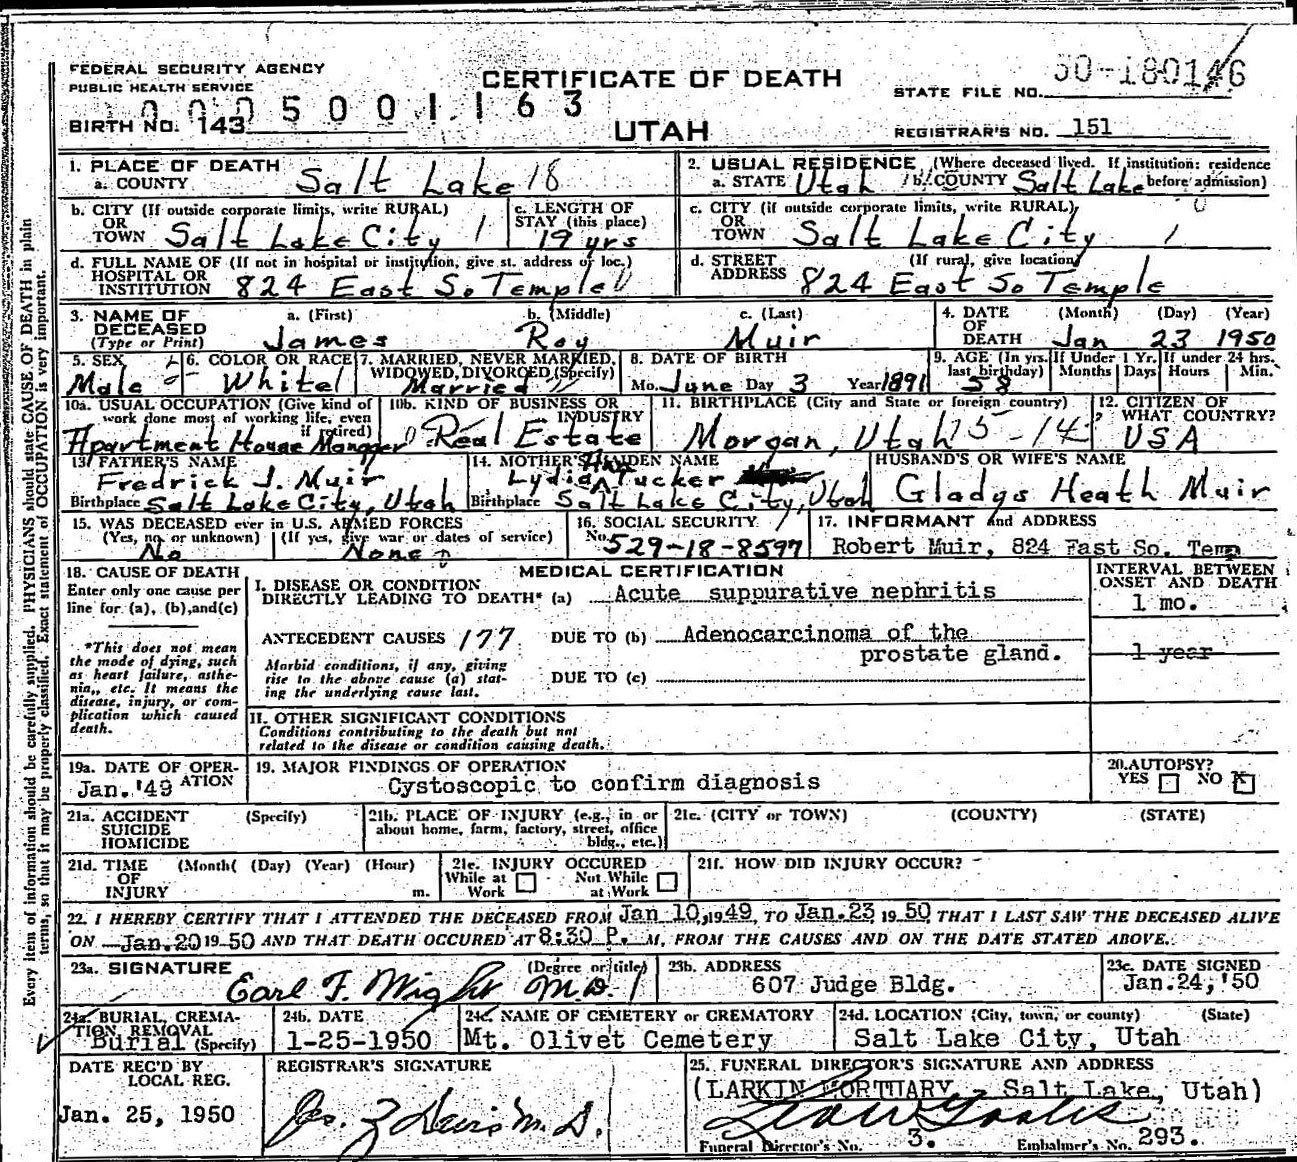 FEDERAL SECURITY AGENCY
PUBLIC HEALTH SERVICE
CERTIFICATE OF DEATH
UTAH
STATE FILE NO.
0005001163
BIRTH NO. 143
REGISTRAR'S NO. 151
Every item of information should be carefully supplied. PHYSICIANS should state CAUSE OF DEATH in plain
terms, so that it may be properly classified. Exact statement of OCCUPATION is very important.
1. PLACE OF DEATH
a. COUNTY Salt Lake 18
2. USUAL RESIDENCE (Where deceased lived. If institution: residence
a. STATE Utah b. COUNTY Salt Lake before admission)
b. CITY (If outside corporate limits, write RURAL)
OR
TOWN Salt Lake City 1
c. LENGTH OF
STAY (this place)
19 yrs
c. CITY (if outside corporate limits, write RURAL)
OR
TOWN Salt Lake City 1
d. FULL NAME OF (If not in hospital or institution, give st. address or loc.)
HOSPITAL OR
INSTITUTION 824 East So. Temple
d. STREET (If rural, give location)
ADDRESS 824 East So. Temple
3. NAME OF DECEASED
(Type or Print)
a. (First) b. (Middle) c. (Last)
James Roy Muir
4. DATE OF DEATH (Month) (Day) (Year)
Jan 23 1950
5. SEX
Male
6. COLOR OR RACE
White
7. MARRIED, NEVER MARRIED,
WIDOWED, DIVORCED (Specify)
Married
8. DATE OF BIRTH
Mo. June Day 3 Year 1891
9. AGE (In yrs. last birthday)
58
If Under 1 Yr. Months Days
If under 24 hrs. Hours Min.
10a. USUAL OCCUPATION (Give kind of
work done most of working life, even
if retired)
Apartment House Manager
10b. KIND OF BUSINESS OR
INDUSTRY
Real Estate
11. BIRTHPLACE (City and State or foreign country)
Morgan, Utah 15-14
12. CITIZEN OF
WHAT COUNTRY?
USA
13. FATHER'S NAME
Fredrick J. Muir
Birthplace Salt Lake City, Utah
14. MOTHER'S MAIDEN NAME
Lydia Ann Tucker
Birthplace Salt Lake City, Utah
HUSBAND'S OR WIFE'S NAME
Gladys Heath Muir
15. WAS DECEASED ever in U.S. ARMED FORCES
(Yes, no, or unknown) (If yes, give war or dates of service)
No None
16. SOCIAL SECURITY
No. 529-18-8597
17. INFORMANT and ADDRESS
Robert Muir, 824 East So. Temp
18. CAUSE OF DEATH
Enter only one cause per
line for (a), (b), and (c)
*This does not mean
the mode of dying, such
as heart failure, asthe-
nia, etc. It means the
disease, injury, or com-
plication which caused
death.
MEDICAL CERTIFICATION
I. DISEASE OR CONDITION
DIRECTLY LEADING TO DEATH* (a) Acute suppurative nephritis
ANTECEDENT CAUSES 177 DUE TO (b) Adenocarcinoma of the
prostate gland.
Morbid conditions, if any, giving
rise to the above cause (a) stat-
ing the underlying cause last.
DUE TO (c)
INTERVAL BETWEEN
ONSET AND DEATH
1 mo.
1 year
II. OTHER SIGNIFICANT CONDITIONS
Conditions contributing to the death but not
related to the disease or condition causing death.
19a. DATE OF OPER-
ATION
Jan. '49
19. MAJOR FINDINGS OF OPERATION
Cystoscopic to confirm diagnosis
20. AUTOPSY?
YES NO X
21a. ACCIDENT (Specify)
SUICIDE
HOMICIDE
21b. PLACE OF INJURY (e.g., in or
about home, farm, factory, street, office
bldg., etc.)
21c. (CITY or TOWN) (COUNTY) (STATE)
21d. TIME (Month) (Day) (Year) (Hour)
OF
INJURY m.
21e. INJURY OCCURED
While at Work Not While at Work
21f. HOW DID INJURY OCCUR?
22. I HEREBY CERTIFY THAT I ATTENDED THE DECEASED FROM Jan 10, 1949, TO Jan. 23 19 50 THAT I LAST SAW THE DECEASED ALIVE
ON Jan. 20 19 50 AND THAT DEATH OCCURED AT 8:30 P. M, FROM THE CAUSES AND ON THE DATE STATED ABOVE.
23a. SIGNATURE (Degree or title)
Earl F. Wight M.D.
23b. ADDRESS
607 Judge Bldg.
23c. DATE SIGNED
Jan. 24, '50
24a. BURIAL, CREMA-
TION, REMOVAL
Burial (Specify)
24b. DATE
1-25-1950
24c. NAME OF CEMETERY or CREMATORY
Mt. Olivet Cemetery
24d. LOCATION (City, town, or county) (State)
Salt Lake City, Utah
DATE REC'D BY
LOCAL REG.
Jan. 25, 1950
REGISTRAR'S SIGNATURE
25. FUNERAL DIRECTOR'S SIGNATURE AND ADDRESS
(LARKIN MORTUARY Salt Lake, Utah)
Funeral Director's No. 3. Embalmer's No. 293.